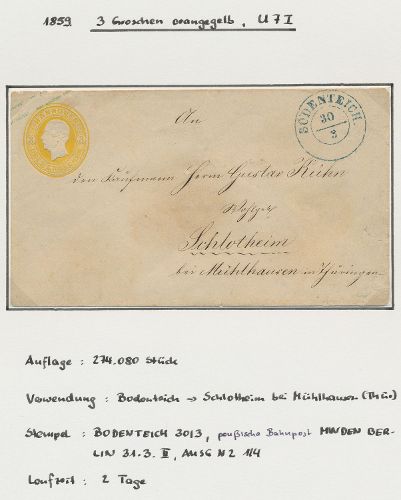 1859. 3 Groschen orangegelb, U 7 I
BODENTEICH.
30
3
An
den Kaufmann Herrn Gustav Kühn
Wohlgeb
Schlotheim
bei Mühlhausen in Thüringen
Auflage : 274.080 Stück
Verwendung : Bodenteich → Schlotheim bei Mühlhausen (Thür)
Stempel : BODENTEICH 30/3, preußische Bahnpost MINDEN BER-
LIN 31.3. II, AUSG N2 1/4
Laufzeit : 2 Tage